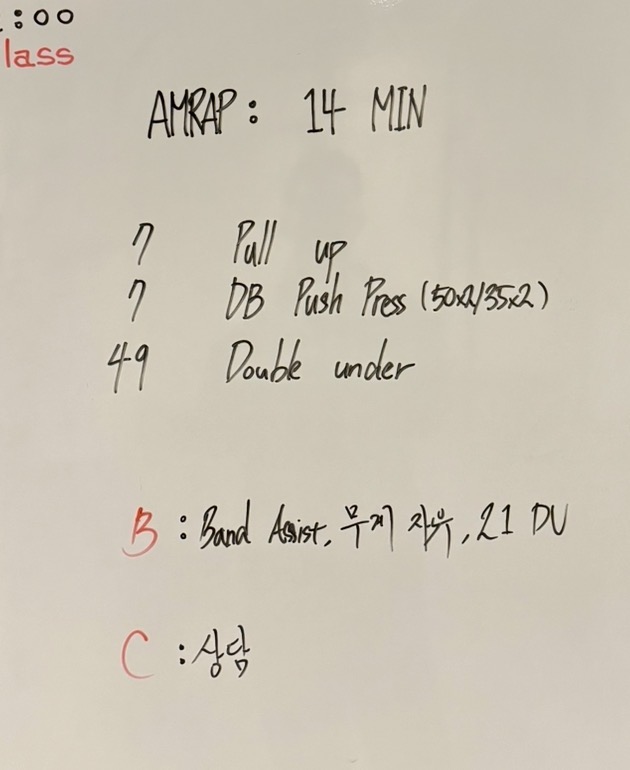 :00
lass
AMRAP: 14 MIN
7 Pull up
7 DB Push Press (50x2/35x2)
49 Double under
B : Band Assist, 무게 자유, 21 DU
C : 상담